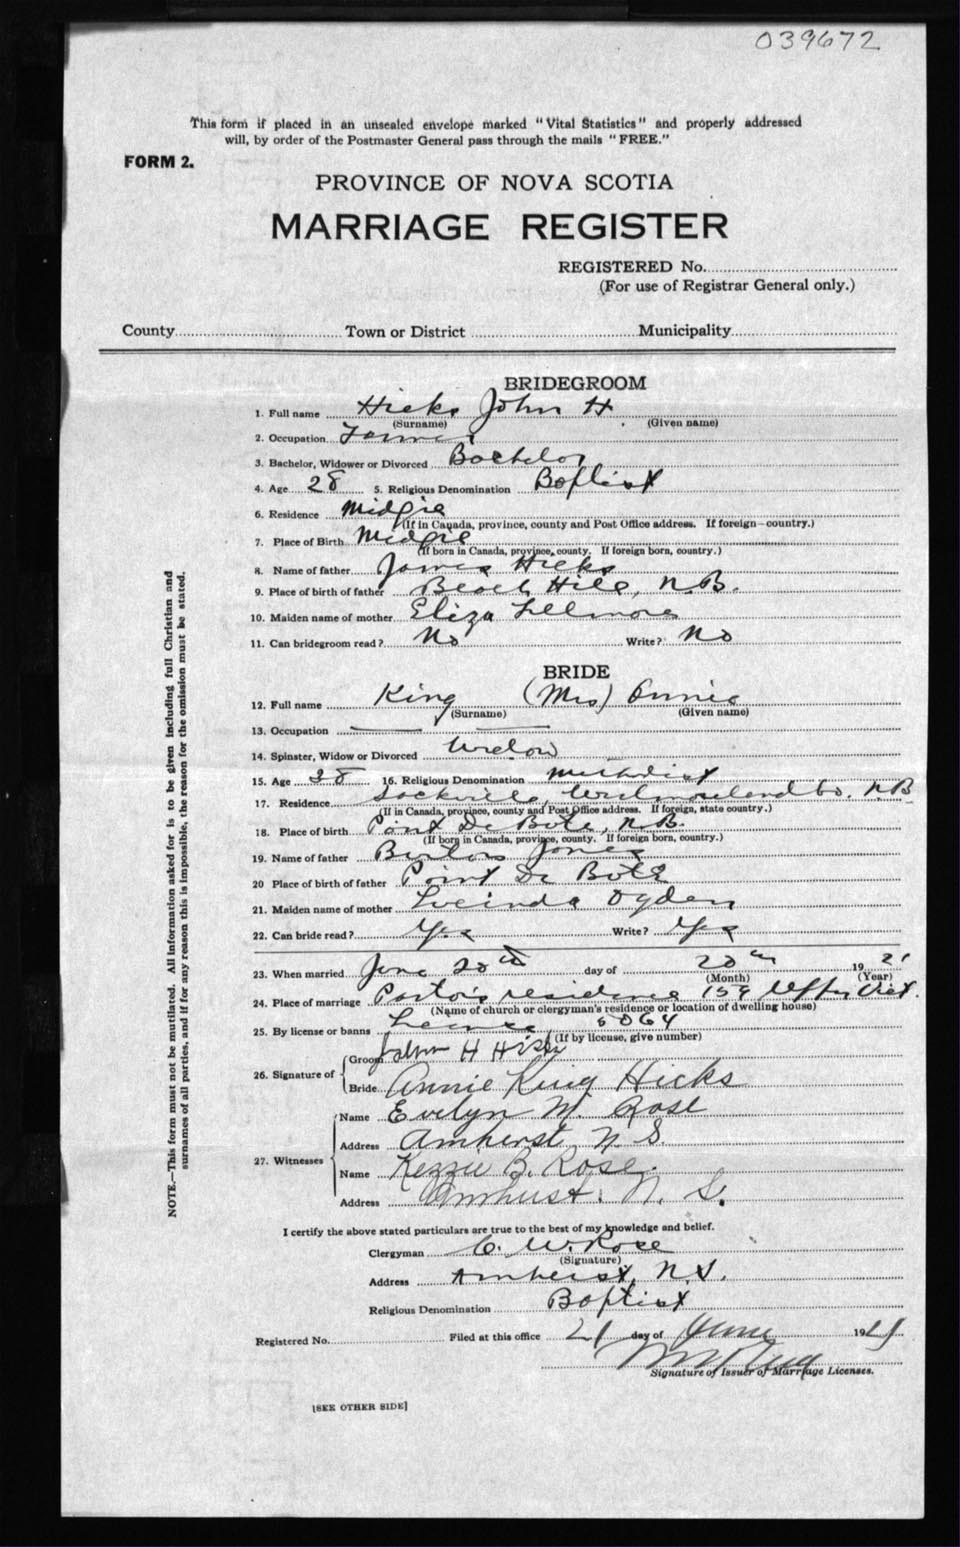 039672
This form if placed in an unsealed envelope marked "Vital Statistics" and properly addressed
will, by order of the Postmaster General pass through the mails "FREE."
FORM 2.
PROVINCE OF NOVA SCOTIA
MARRIAGE REGISTER
REGISTERED No.
(For use of Registrar General only.)
County Town or District Municipality
BRIDEGROOM
1. Full name Hicks John H
(Surname) (Given name)
2. Occupation Farmer
3. Bachelor, Widower or Divorced Bachelor
4. Age 28 5. Religious Denomination Baptist
6. Residence Midgie
(If in Canada, province, county and Post Office address. If foreign—country.)
7. Place of Birth Midgie
(If born in Canada, province, county. If foreign born, country.)
8. Name of father James Hicks
9. Place of birth of father Beach Hill, N.B.
10. Maiden name of mother Eliza Fillmore
11. Can bridegroom read? No Write? No
BRIDE
12. Full name King (Mrs) Annie
(Surname) (Given name)
13. Occupation
14. Spinster, Widow or Divorced Widow
15. Age 38 16. Religious Denomination Methodist
17. Residence Sackville, Westmoreland Co. N B
(If in Canada, province, county and Post Office address. If foreign, state country.)
18. Place of birth Point De Bute, N.B.
(If born in Canada, province, county. If foreign born, country.)
19. Name of father Jones
20 Place of birth of father Point De Bute
21. Maiden name of mother Lucinda Ogden
22. Can bride read? Yes Write? Yes
23. When married June 20th day of 20th 1921
(Month) (Year)
24. Place of marriage Pastor's residence 159 Vict.
(Name of church or clergyman's residence or location of dwelling house)
25. By license or banns License 5064
(If by license, give number)
26. Signature of Groom John H Hicks
Bride Annie King Hicks
27. Witnesses Name Evelyn M. Rose
Address Amherst, N S.
Name Kezzie B. Rose.
Address Amherst. N. S.
I certify the above stated particulars are true to the best of my knowledge and belief.
Clergyman C. W. Rose
(Signature)
Address Amherst, N.S.
Religious Denomination Baptist
Registered No. Filed at this office 21 day of June 1921
Signature of Issuer of Marriage Licenses.
[SEE OTHER SIDE]
NOTE.—This form must not be mutilated. All information asked for is to be given including full Christian and
surnames of all parties, and if for any reason this is impossible, the reason for the omission must be stated.